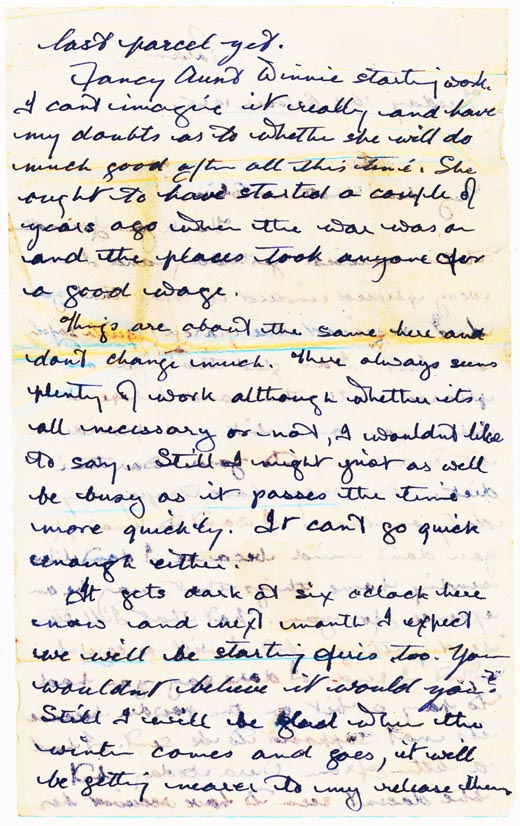 last parcel yet.
Fancy Aunt Winnie starting work.
I cant imagine it really and have
my doubts as to whethe she will do
much good after all this time. She
ought to have started a couple of
years ago when the war was on
and the places took anyone for
a good wage.
Things are about the same here and
dont change much. There always seems
plenty of work although whether its
all necessary or not, I wouldnt like
to say. Still I might just as well
be busy as it passes the time
more quickly. It cant go quick
enough either.
It gets dark at six oclock here
now and next month I expect
we will be starting fires too. You
wouldnt believe it would you?
Still I will be glad when the
winter comes and goes, it will
be getting nearer to my release then